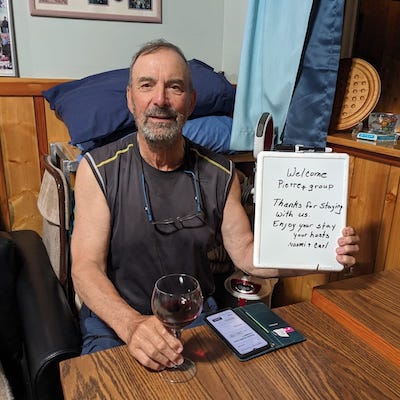 Welcome
Pierre + group
Thanks for staying
with us.
Enjoy your stay
your hosts
Naomi + Carl